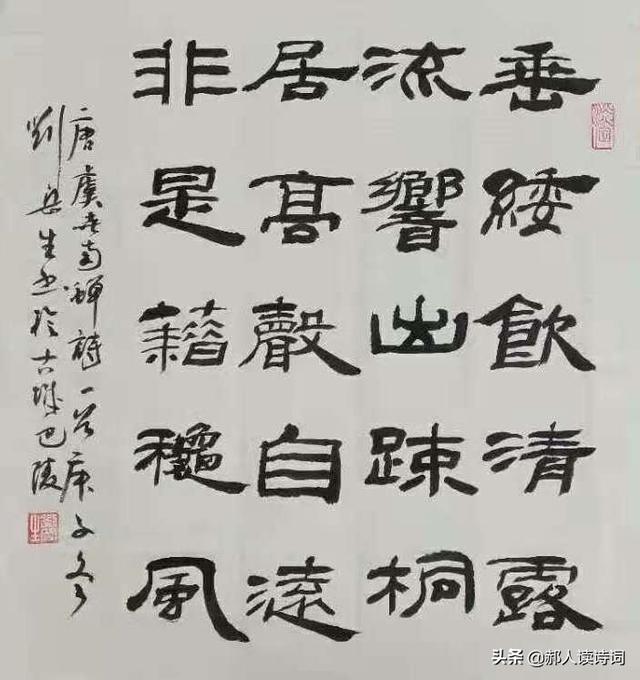 垂緌飲清露
流響出疎桐
居高聲自遠
非是藉穐風
唐虞世南蟬詩一首庚子冬
劉岳生书於古城巴陵
头条 @郝人读诗词